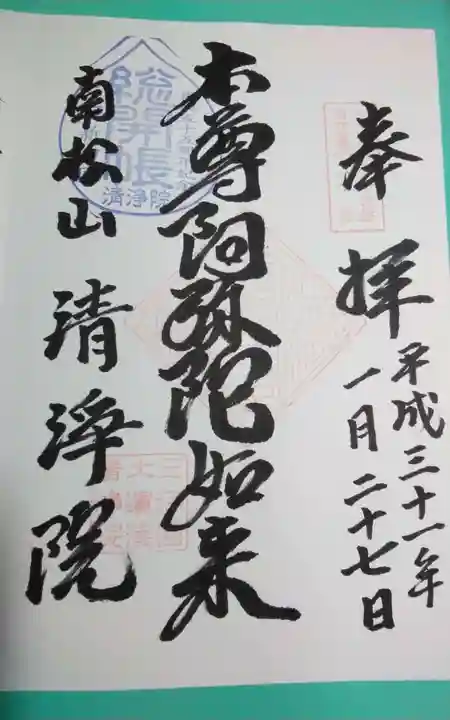 奉拝
平成三十一年
一月二十七日
本尊阿弥陀如来
総開帳
清浄院
南松山 清浄院